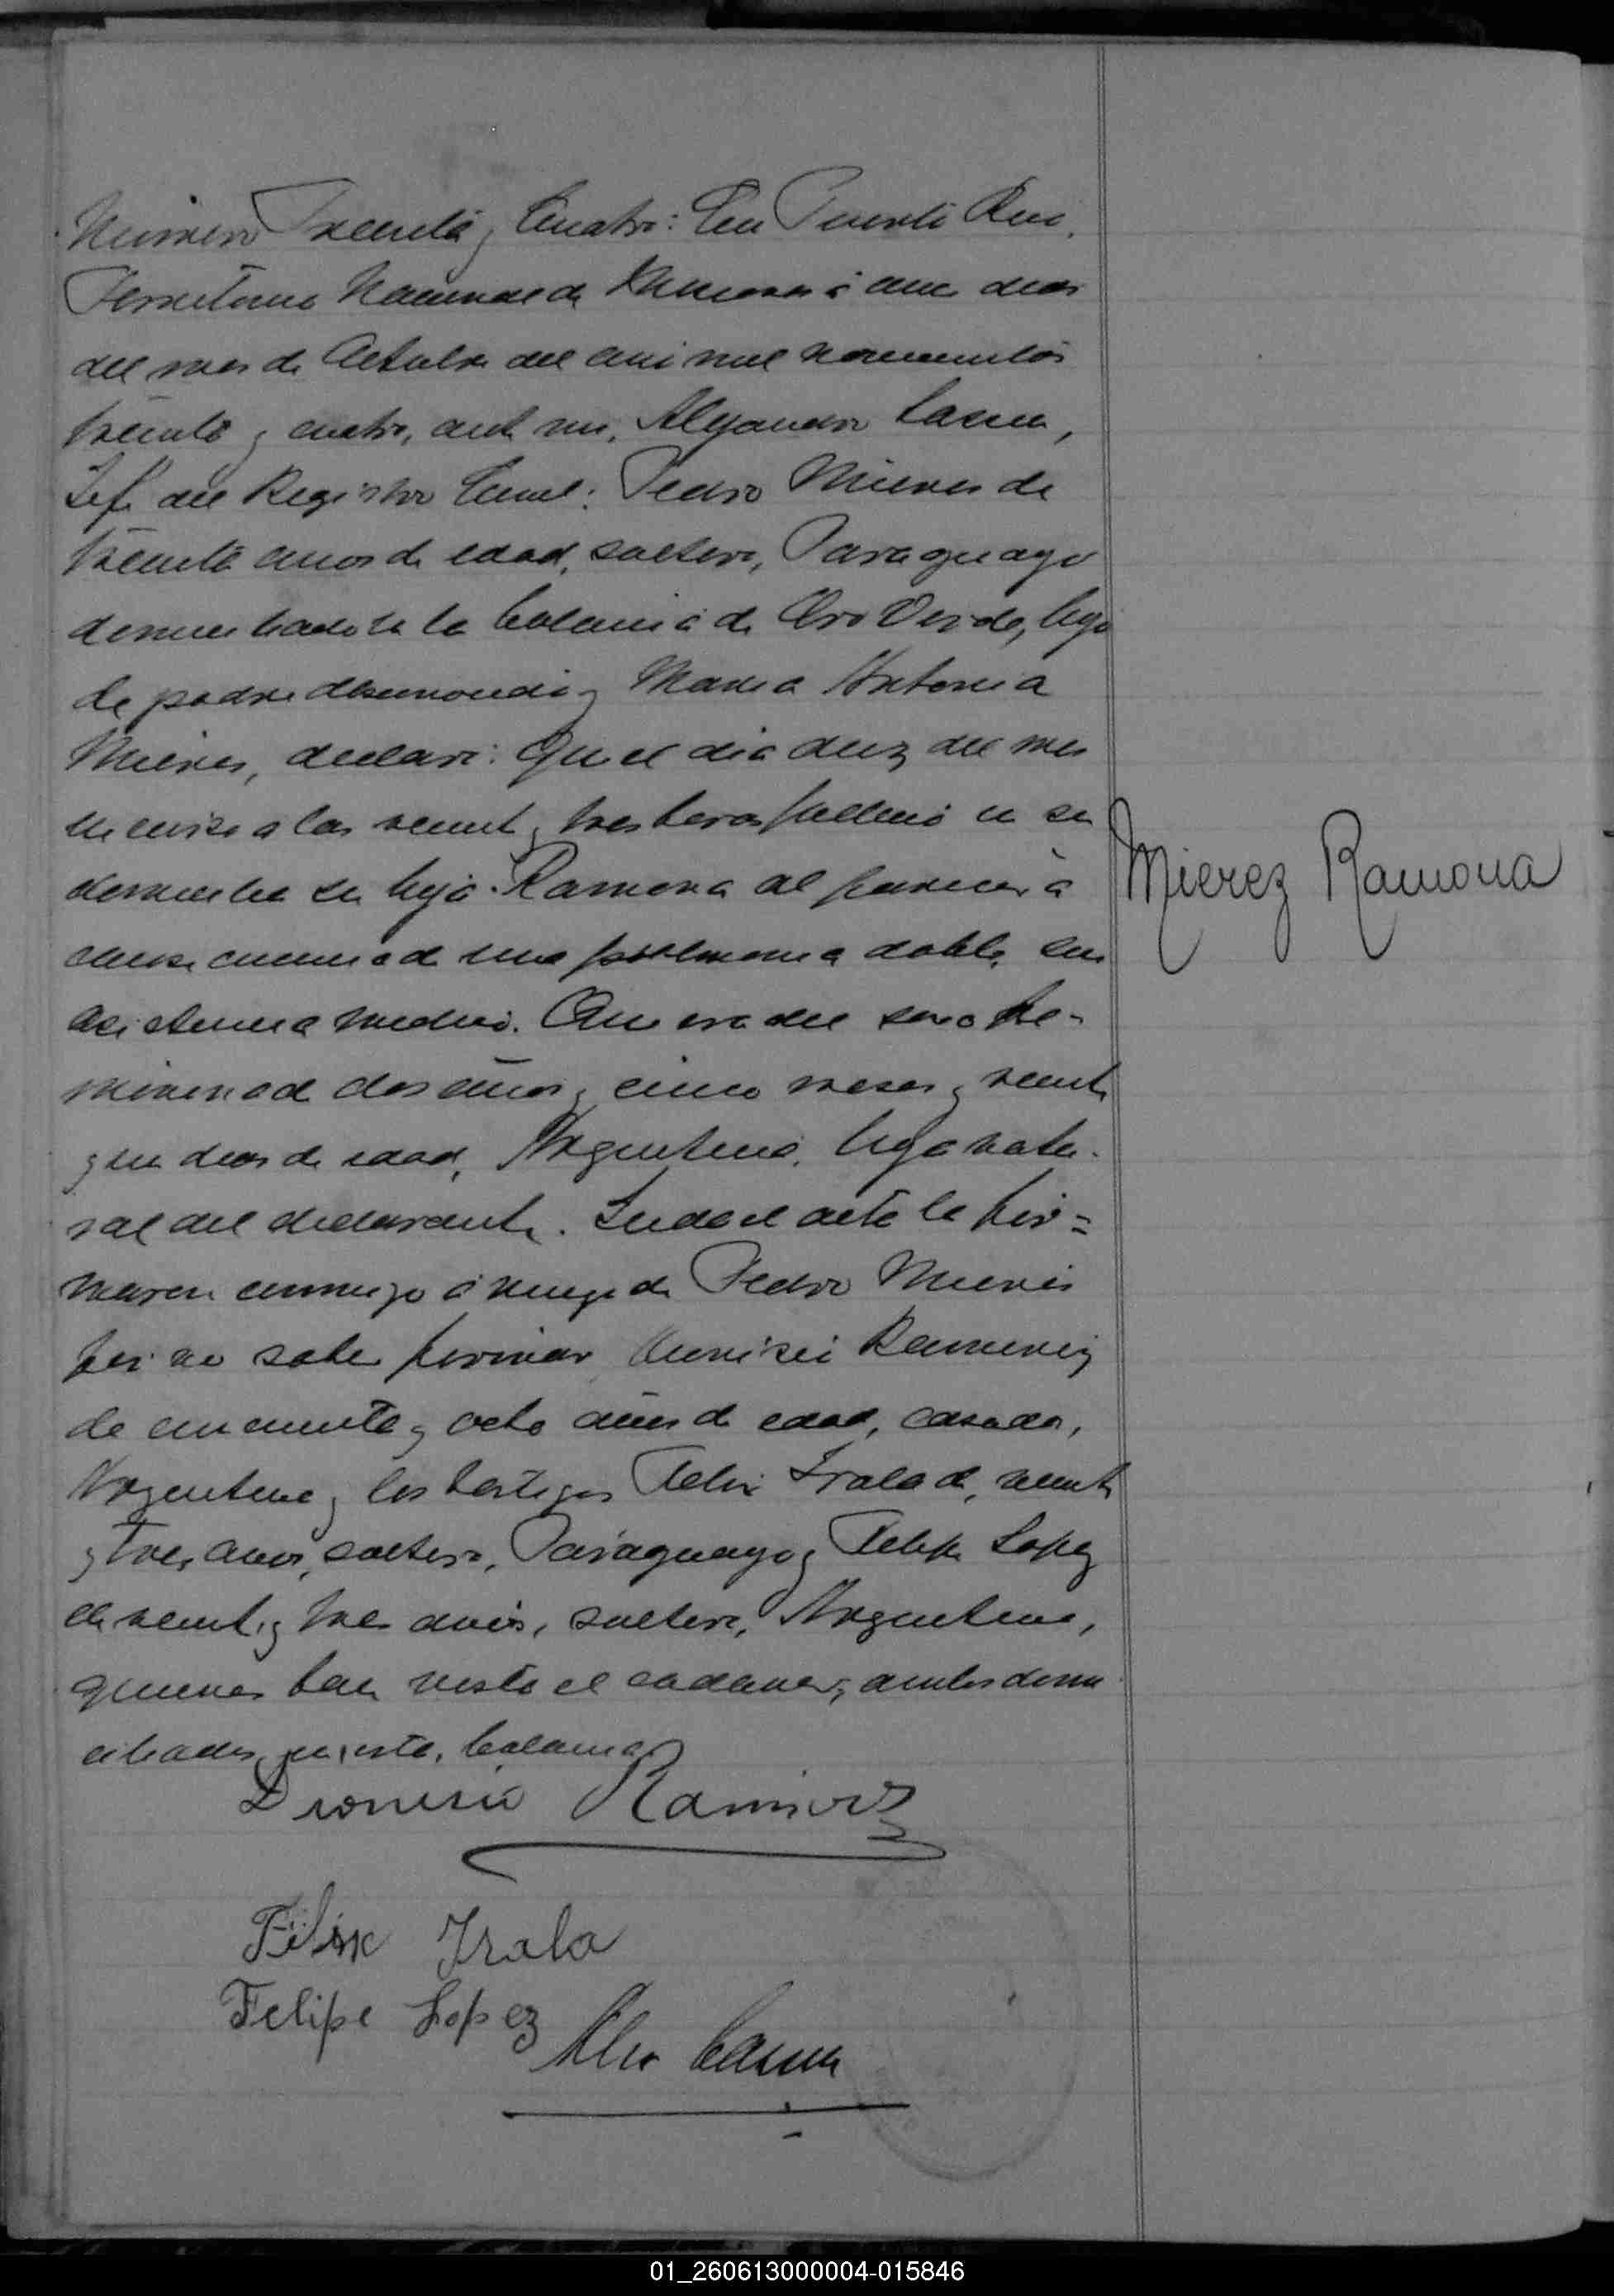 Número Treinta y Cuatro: En Puerto Rico,
Territorio Nacional de Misiones á once dias
del mes de Octubre del año mil novecientos
treinta y cuatro, ante mi, Alejandro
Jefe del Registro Civil: Pedro Mieres de
treinta años de edad, soltero, Paraguayo
domiciliado en la Colonia de Oro Verde, hijo
de padre desconocido y Maria Antonia
Mieres, declaró: Que el dia diez del mes
en curso a las veinte y tres horas falleció en su
domicilio su hija Ramona al parecer á
consecuencia de una pulmonia doble, sin
asistencia medica. Que era del sexo fe-
menino de dos años, cinco meses y veinte
y un dias de edad, Argentina, hija natu-
ral del declarante. Leida el acta la fir=
maron conmigo á ruego de Pedro Mieres
por no saber firmar, Dionisio Ramirez
de cincuenta y ocho años de edad, casado,
Argentino y los testigos Felix Irala de, veinte
y tres años, soltero, Paraguayo y Felipe Lopez
de veinte y tres años, soltero, Argentino,
quienes han visto el cadaver, ambos domi
ciliados en esta, Colonia
Dionisio Ramirez
Felix Irala
Felipe Lopez
Mierez Ramona
01_260613000004-015846